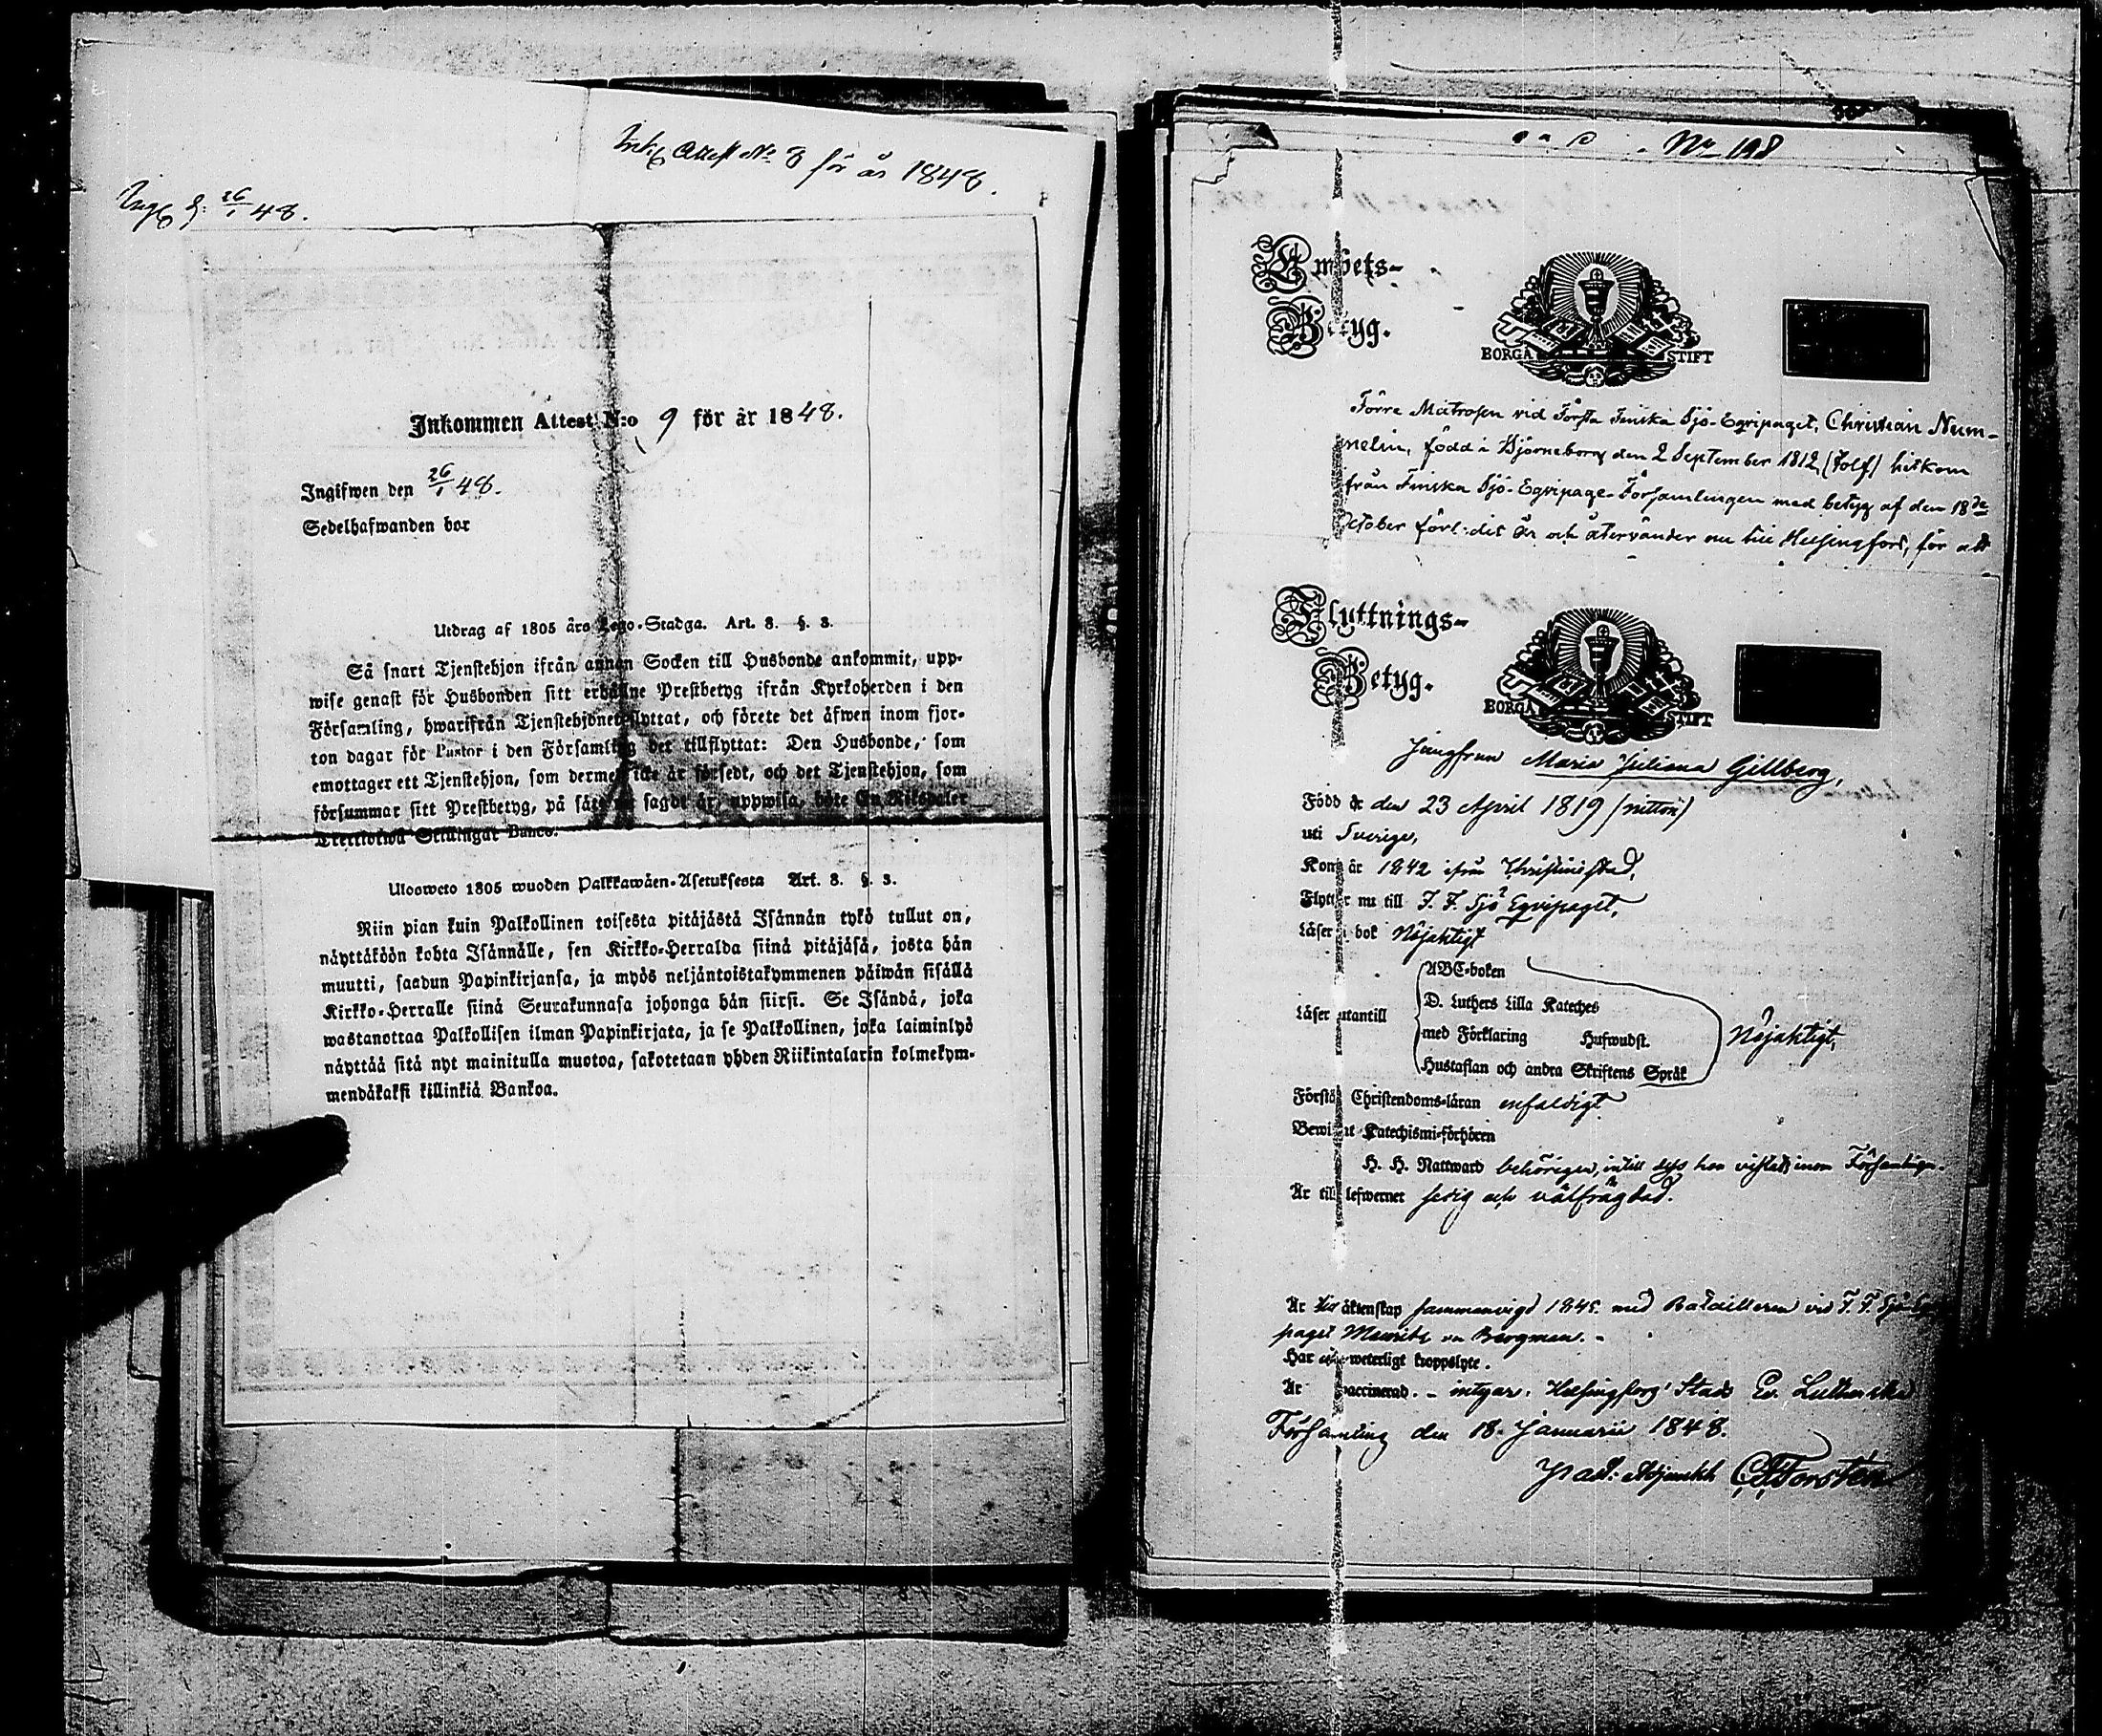 Ink. Attest No 8 för år 1848.
Ingif. d. 26/1 48.
Inkommen Attest N:o 9 för år 1848.
Ingifwen den 26/1 48.
Sedelhafwanden bor
Utdrag af 1805 års Lego-Stadga. Art. 3. §. 3.
Så snart Tjenstehjon ifrån annan Socken till Husbonde ankommit, upp-
wise genast för Husbonden sitt erhållne Prestbetyg ifrån Kyrkoherden i den
Församling, hwarifrån Tjenstehjonet flyttat, och förete det äfwen inom fjor-
ton dagar för Pastor i den Församling det tillflyttat: Den Husbonde, som
emottager ett Tjenstehjon, som dermed icke är försedt, och det Tjenstehjon, som
försummar sitt Prestbetyg, på sätt nu sagdt är, uppwisa, böte En Riksdaler
Trettiotwå Skillingar Banco.
Ulosweto 1805 wuoden Palkkawäen-Asetuksesta Art. 3. §. 3.
Niin pian kuin Palkollinen toisesta pitäjästä Isännän tykö tullut on,
näyttäköön kohta Isännälle, sen Kirkko-Herralda siinä pitäjäsä, josta hän
muutti, saadun Papinkirjansa, ja myös neljäntoistakymmenen päiwän sisällä
Kirkko-Herralle siinä Seurakunnasa johonga hän siirsi. Se Isändä, joka
wastanottaa Palkollisen ilman Papinkirjata, ja se Palkollinen, joka laiminlyö
näyttää sitä nyt mainitulla muotoa, sakotetaan yhden Riikintalarin kolmekym-
mendäkaksi killinkiä Bankoa.
No 198
Embets-
Betyg.
BORGÅ STIFT
Förre Matrosen vid Första Finska Sjö-Eqvipaget, Christian Num-
melin, född i Björneborg den 2 September 1812 (tolf) hitkom
från Finska Sjö-Eqvipage-Församlingen med betyg af den 18de
October förl:dit år och återvänder nu till Helsingfors, för att
Flyttnings-
Betyg.
BORGÅ STIFT
Jungfrun Maria Juliana Gillberg,
Född är den 23 April 1819 (nitton)
uti Sverige,
Kom år 1842 ifrån Christinestad,
Flyttar nu till F. F. Sjö Eqvipaget,
Läser i bok Nöjaktigt
ABC-boken
D. Luthers Lilla Kateches
Läser utantill
med Förklaring Hufwudst.
Nöjaktigt,
Hustaflan och andra Skriftens Språk
Förstår Christendoms-läran enfaldigt
Bewistat Katechismi-förhören
H. H. Nattward behörigen, intill dess hon vistats inom Församlingen.
Är till lefwernet sedig och välfrägdad.
Är till äktenskap sammanvigd 1845 med Batailleren vid F. F. Sjö-Eqvi-
paget Maurits Bergman. -
Har weterligt kroppslyte.
Är vaccinerad. - intygar. Helsingfors' Stads Ev. Lutherska
Församling den 18. Januarii 1848.
Past: Adjunkt Forstén